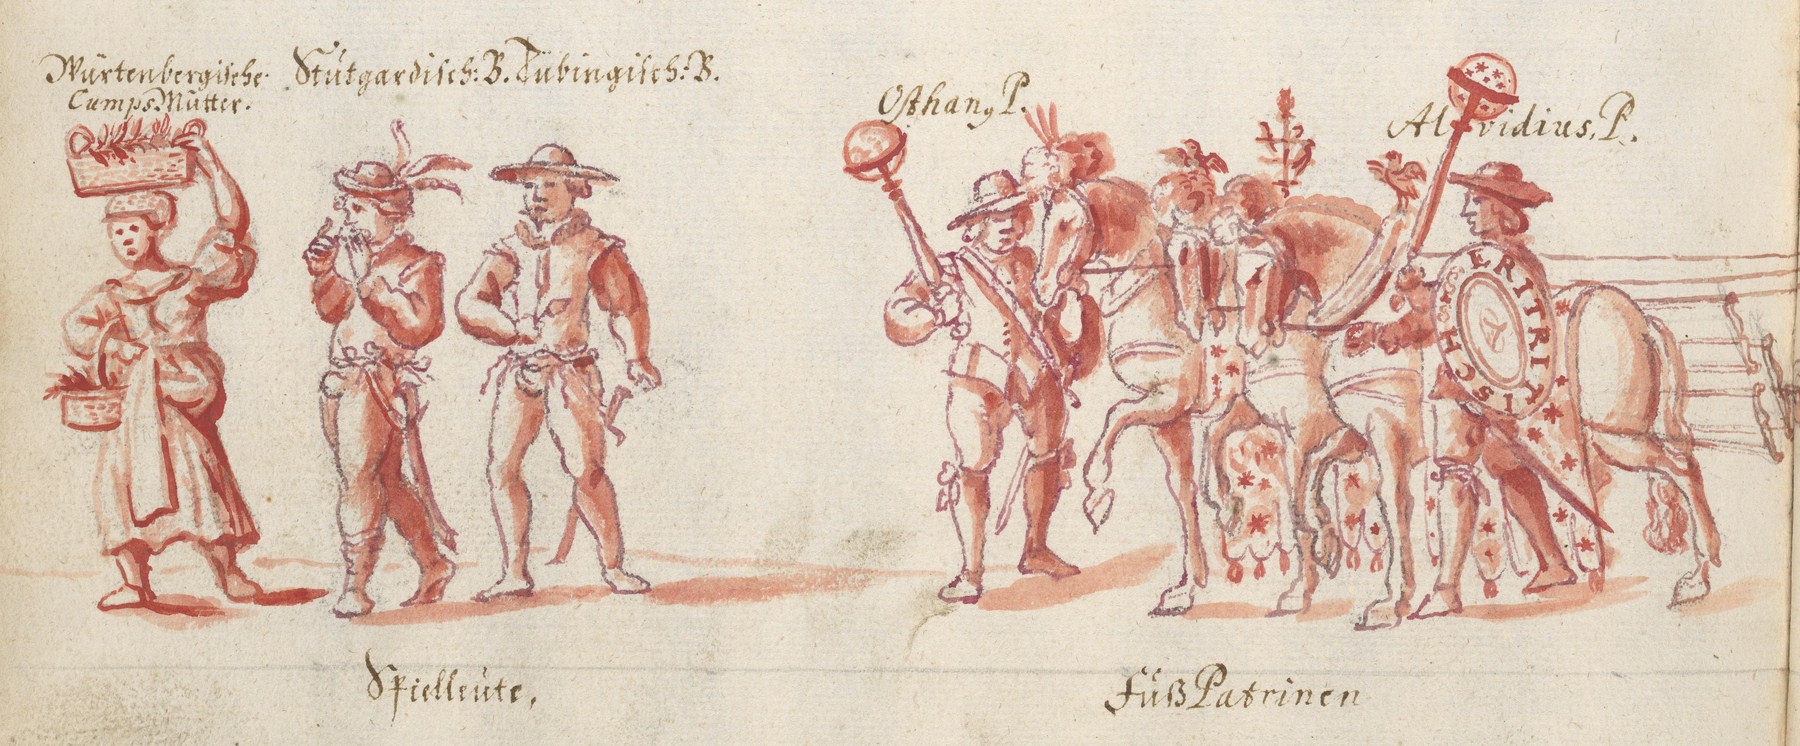 Würtenbergische
CumpsMütter.
Stütgardisch: B. Tübingisch: B.
Osthang P.
Al vidius, P.
S. ERITRIA
ISCHS
Spielleüte,
FüßPatrinen